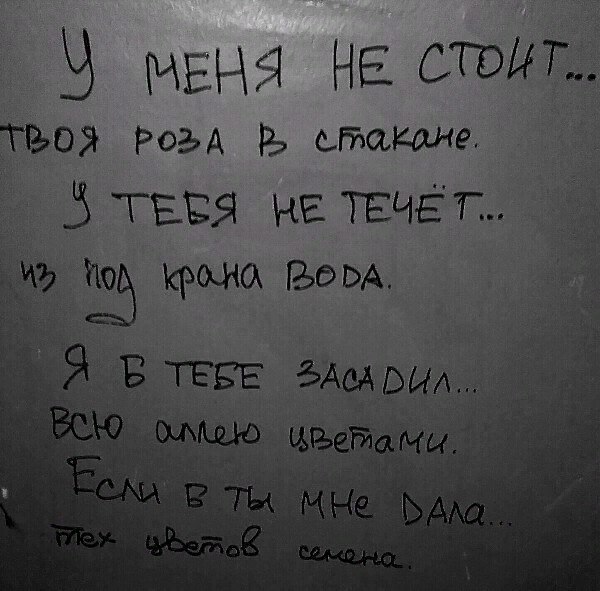 У МЕНЯ НЕ СТОИТ...
ТВОЯ РОЗА В стакане.
У ТЕБЯ НЕ ТЕЧЁТ...
из под крана ВОДА.
Я Б ТЕБЕ ЗАСАДИЛ...
ВСЮ аллею цветами.
Если Б ТЫ МНе ДАЛа...
тех цветов семена.